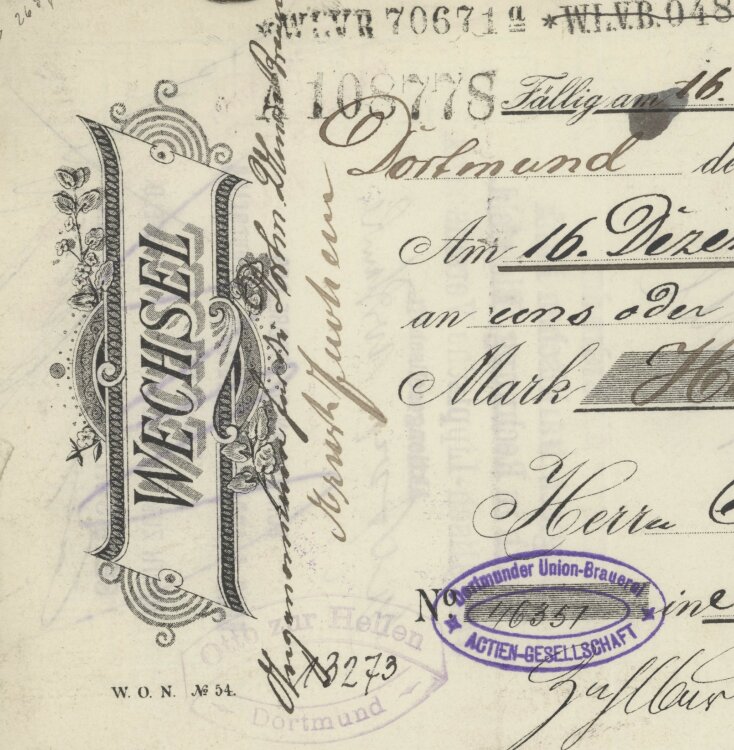 WLVR 70671a * W.L.V.B. 048
108778
Fällig am 16.
Dortmund de
Am 16. Deze
an uns oder
Mark H
Herrn
No 46351 ine
Dortmunder Union-Brauerei
ACTIEN-GESELLSCHAFT
Zahlbar
WECHSEL
Angenommen
Otto zur Hellen
Dortmund
13273
W. O. N. № 54.